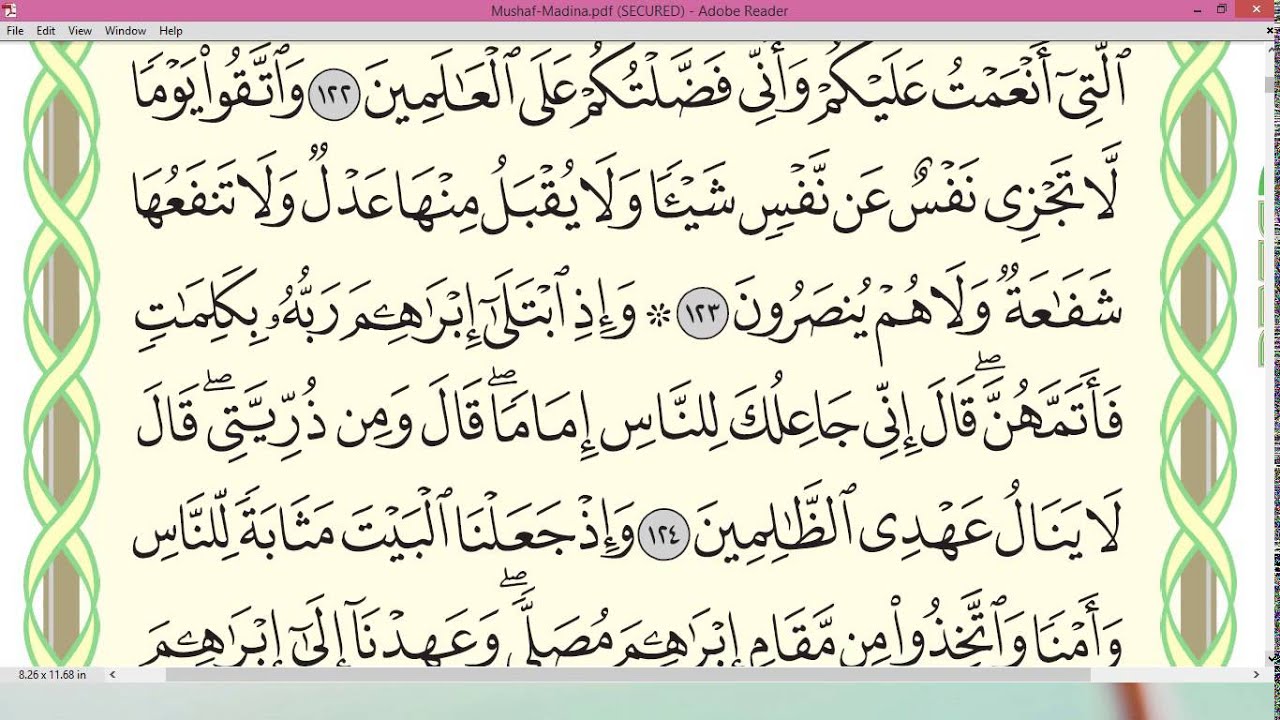 Mushaf-Madina.pdf (SECURED) - Adobe Reader
File Edit View Window Help
ٱلَّتِىٓ أَنْعَمْتُ عَلَيْكُمْ وَأَنِّى فَضَّلْتُكُمْ عَلَى ٱلْعَـٰلَمِينَ ١٢٢ وَٱتَّقُوا۟ يَوْمًا
لَّا تَجْزِى نَفْسٌ عَن نَّفْسٍ شَيْـًٔا وَلَا يُقْبَلُ مِنْهَا عَدْلٌ وَلَا تَنفَعُهَا
شَفَـٰعَةٌ وَلَا هُمْ يُنصَرُونَ ١٢٣ ۞ وَإِذِ ٱبْتَلَىٰٓ إِبْرَٰهِـۧمَ رَبُّهُۥ بِكَلِمَـٰتٍ
فَأَتَمَّهُنَّ ۖ قَالَ إِنِّى جَاعِلُكَ لِلنَّاسِ إِمَامًا ۖ قَالَ وَمِن ذُرِّيَّتِى ۖ قَالَ
لَا يَنَالُ عَهْدِى ٱلظَّـٰلِمِينَ ١٢٤ وَإِذْ جَعَلْنَا ٱلْبَيْتَ مَثَابَةً لِّلنَّاسِ
وَأَمْنًا وَٱتَّخِذُوا۟ مِن مَّقَامِ إِبْرَٰهِـۧمَ مُصَلًّى ۖ وَعَهِدْنَآ إِلَىٰٓ إِبْرَٰهِـۧمَ
8.26 x 11.68 in